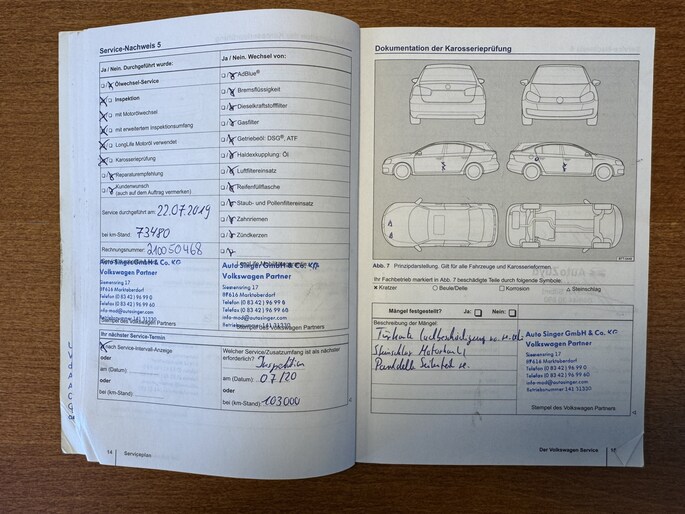 Service-Nachweis 5
Ja / Nein. Durchgeführt wurde:
Ölwechsel-Service
Inspektion
mit Motorölwechsel
mit erweitertem Inspektionsumfang
LongLife Motoröl verwendet
Karosserieprüfung
Reparaturempfehlung
Kundenwunsch
(auch auf dem Auftrag vermerken)
Service durchgeführt am: 22.07.2019
bei km-Stand: 73480
Rechnungsnummer: 210050468
Auto Singer GmbH & Co. KG
Volkswagen Partner
Siemensring 17
89616 Marktoberdorf
Telefon (0 83 42) 96 99 0
Telefax (0 83 42) 96 99 60
info-mod@autosinger.com
Betriebsnummer 141 31330
Stempel des Volkswagen Partners
Ja / Nein. Wechsel von:
AdBlue®
Bremsflüssigkeit
Dieselkraftstofffilter
Gasfilter
Getriebeöl: DSG®, ATF
Haldexkupplung: Öl
Luftfiltereinsatz
Reifenfüllflasche
Staub- und Pollenfiltereinsatz
Zahnriemen
Zündkerzen
Auto Singer GmbH & Co. KG
Volkswagen Partner
Siemensring 17
89616 Marktoberdorf
Telefon (0 83 42) 96 99 0
Telefax (0 83 42) 96 99 60
info-mod@autosinger.com
Betriebsnummer 141 31330
Stempel des Volkswagen Partners
Ihr nächster Service-Termin
nach Service-Intervall-Anzeige
oder
am (Datum):
oder
bei (km-Stand):
Welcher Service/Zusatzumfang ist als nächster
erforderlich? Inspektion
am (Datum): 07/20
oder
bei (km-Stand): 103000
14
Serviceplan
Dokumentation der Karosserieprüfung
Abb. 7 Prinzipdarstellung. Gilt für alle Fahrzeuge und Karosserieformen
Ihr Fachbetrieb markiert in Abb. 7 beschädigte Teile durch folgende Symbole:
x Kratzer ○ Beule/Delle □ Korrosion △ Steinschlag
Mängel festgestellt? Ja: Nein:
Beschreibung der Mängel:
Türkante Lackbeschädigung
Steinschlag
Parkdelle Seitenteil
Auto Singer GmbH & Co. KG
Volkswagen Partner
Siemensring 17
89616 Marktoberdorf
Telefon (0 83 42) 96 99 0
Telefax (0 83 42) 96 99 60
info-mod@autosinger.com
Betriebsnummer 141 31330
Stempel des Volkswagen Partners
Der Volkswagen Service